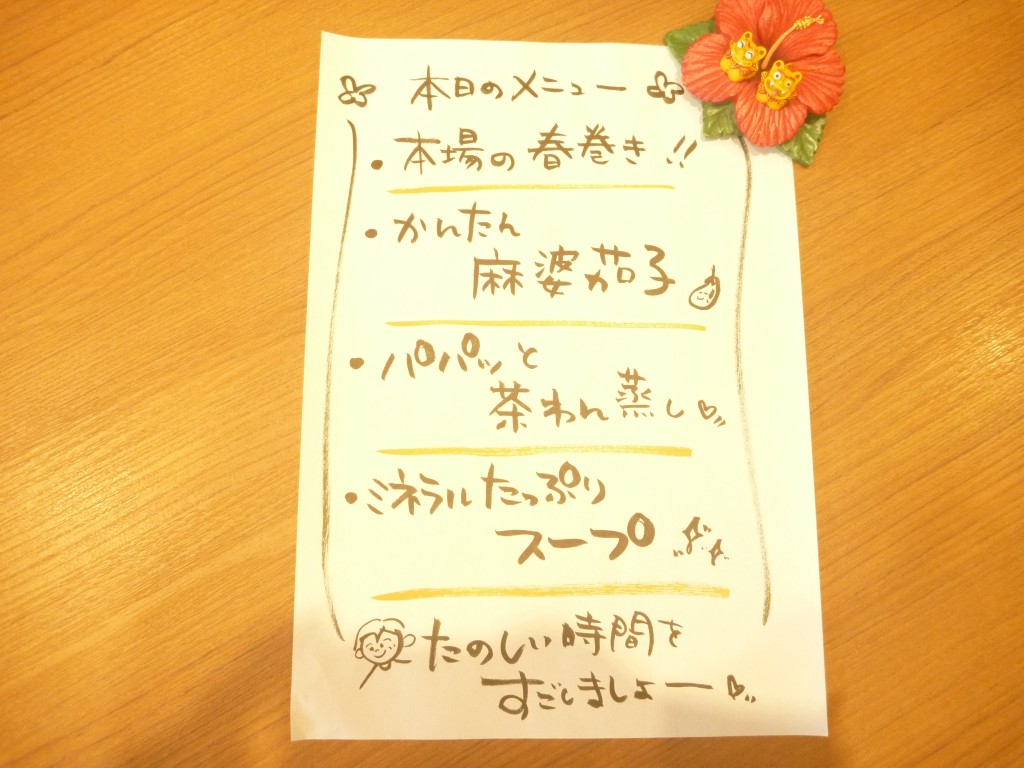 本日のメニュー
・本場の春巻き!!
・かんたん
麻婆茄子
・パパッと
茶わん蒸し
・ミネラルたっぷり
スープ
たのしい時間を
すごしましょー